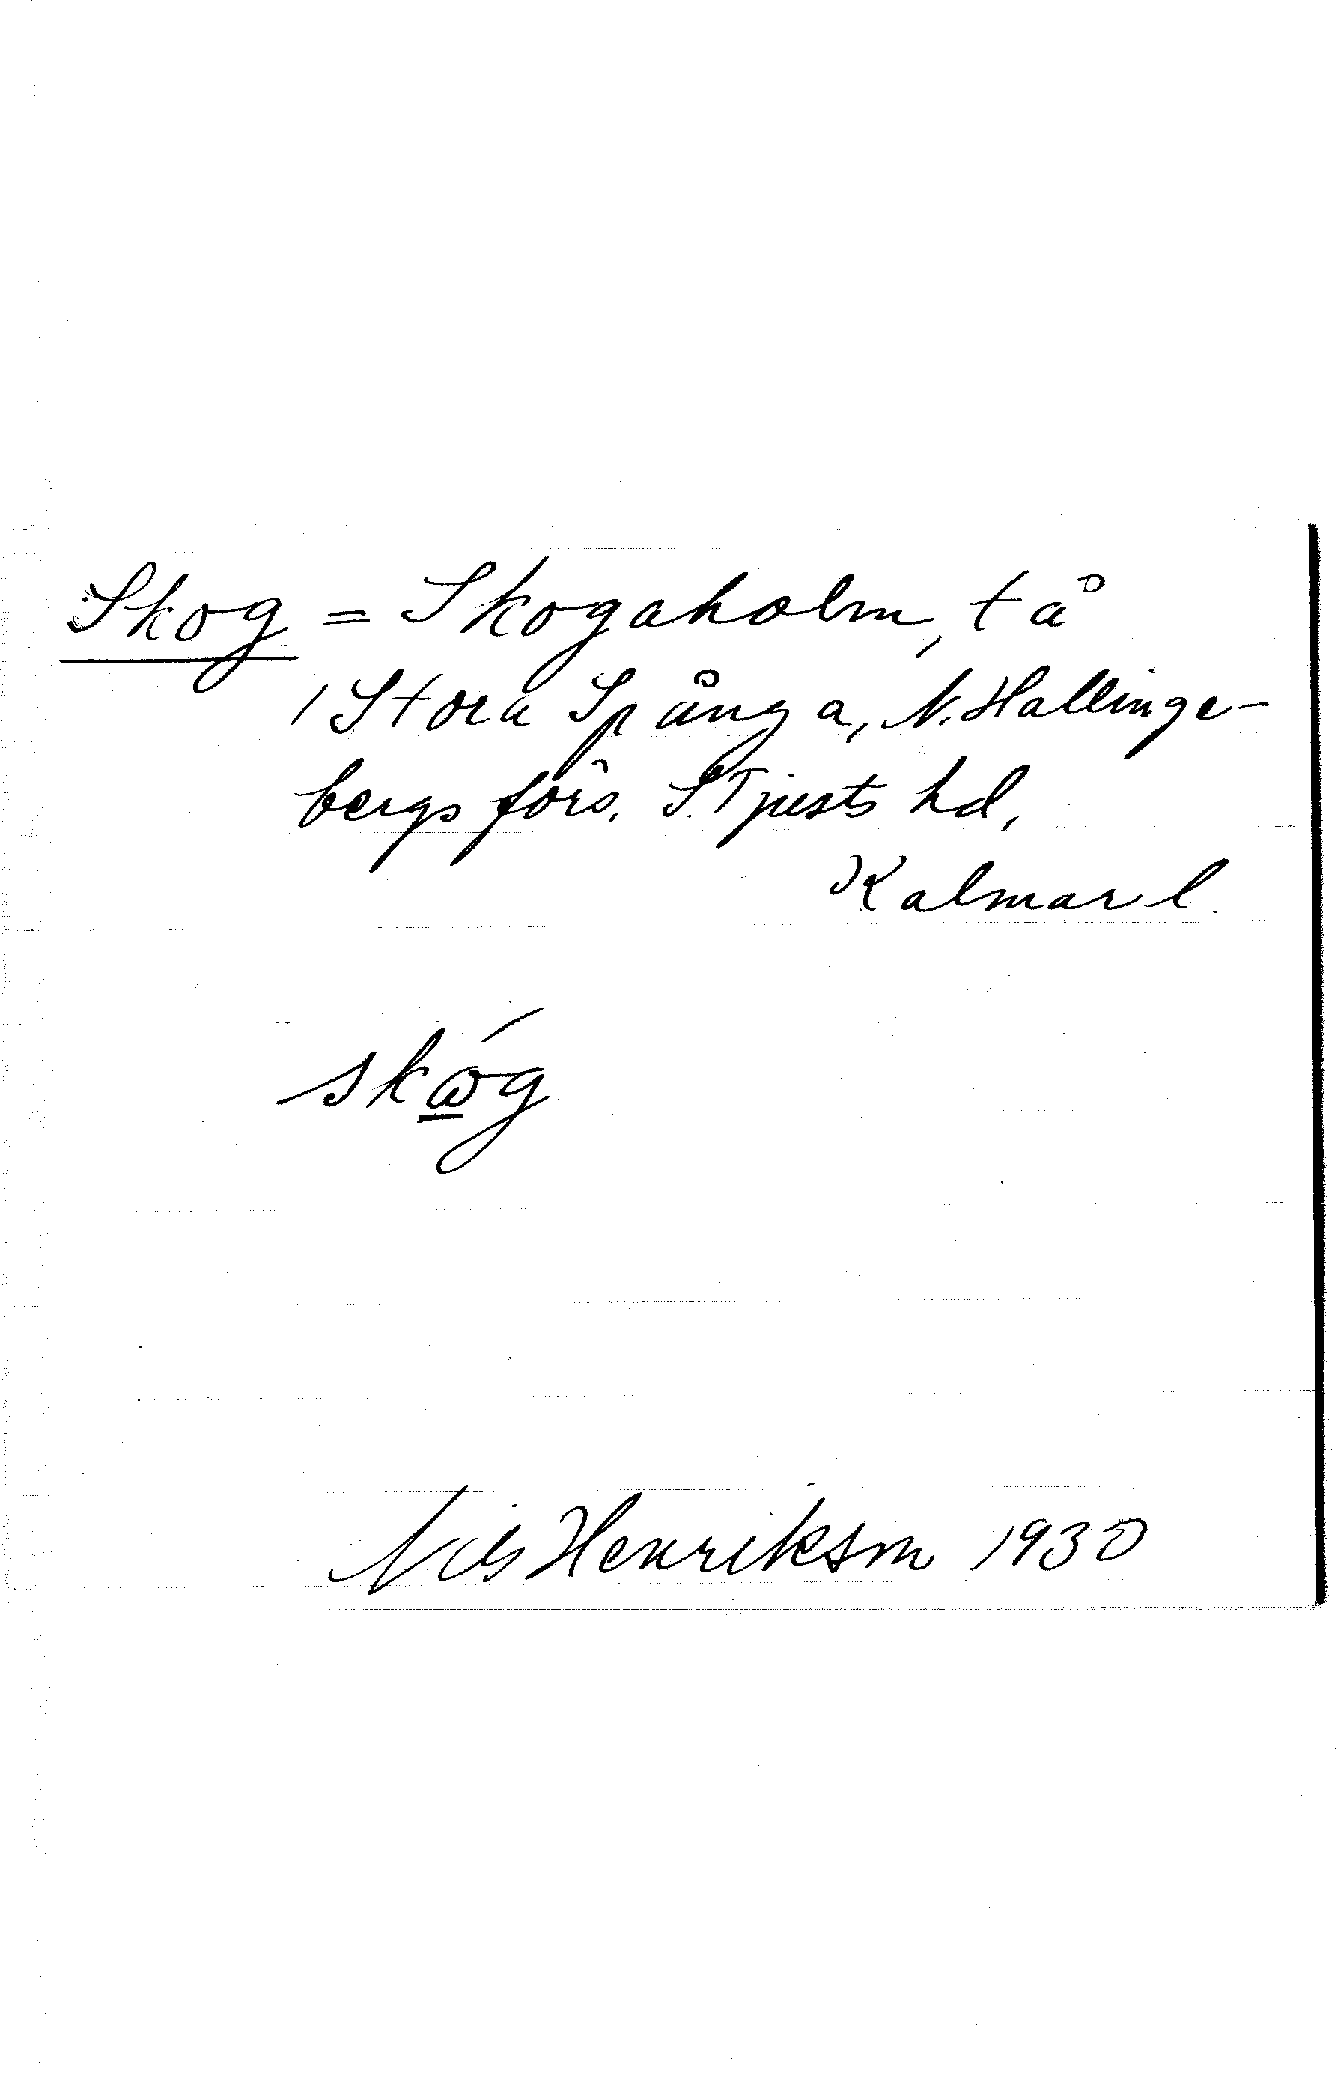 Skog = Skogaholm, t å
1 Stora Spånga, N. Hallinge-
bergs förs. S. Tjusts hd,
Kalmar l.
skώg
Nils Henriksm 1930